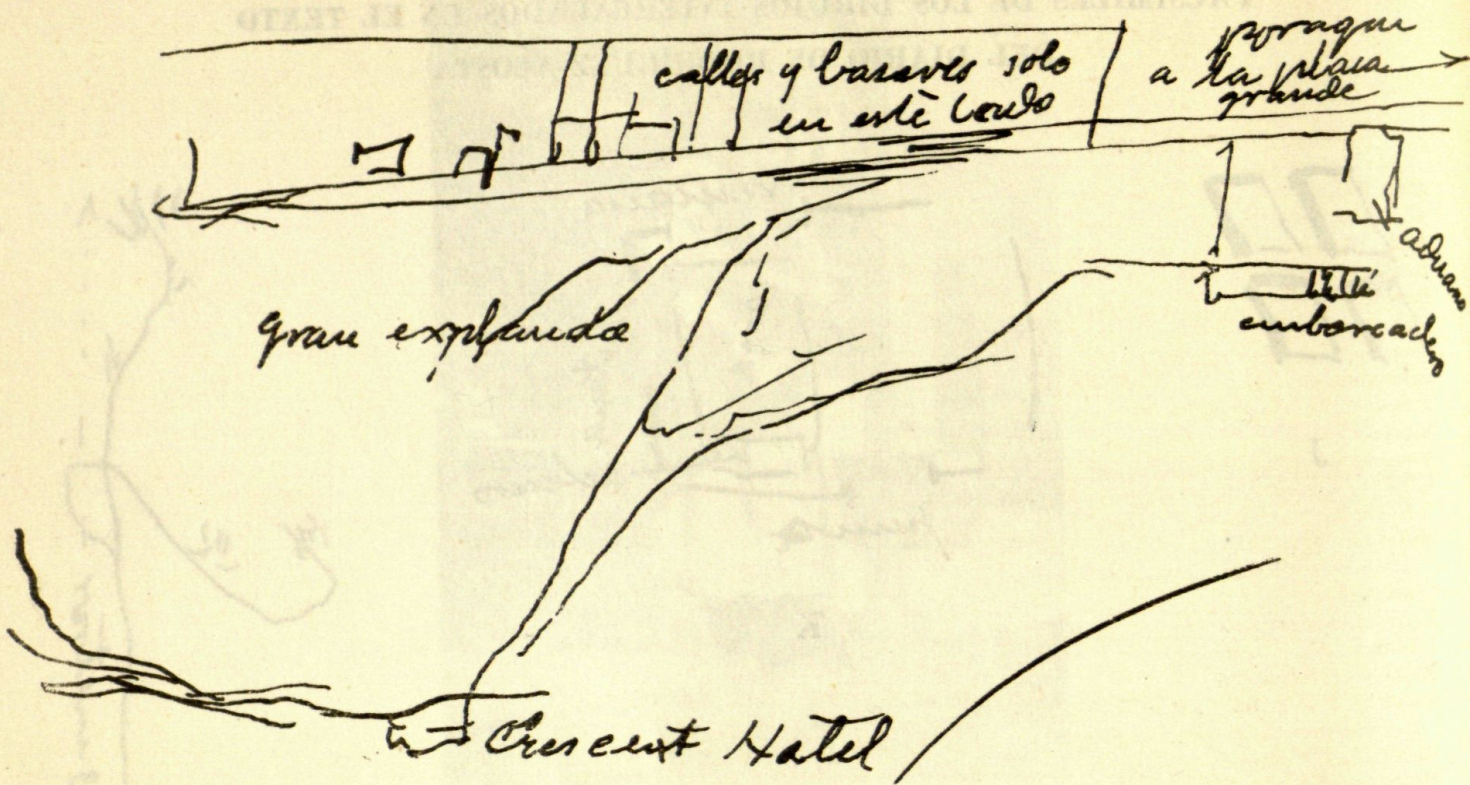 calles y bazares solo
en este lado
por aqui
a la plaza
grande
aduana
embarcadero
gran explanada
Crescent Hotel